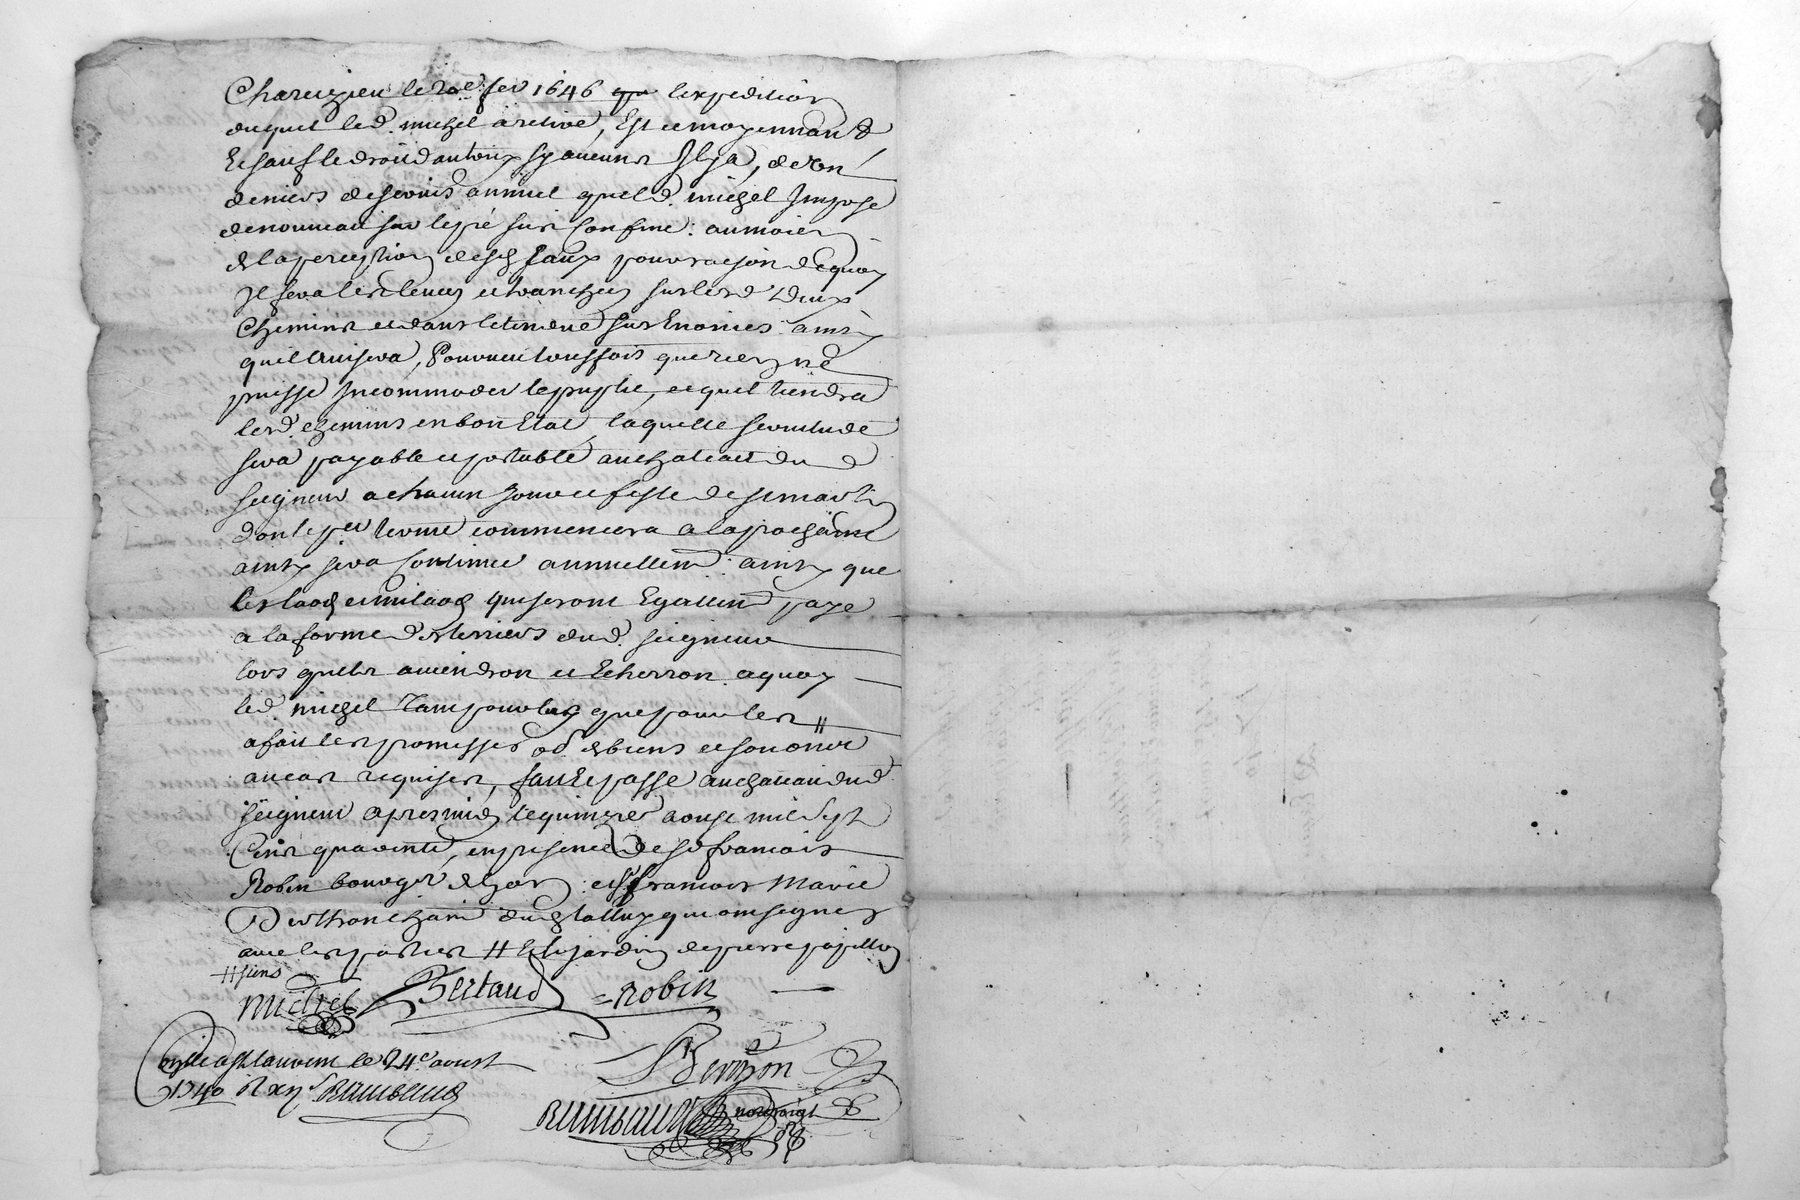 Charezieu le 20e fev 1646 lexpedition
duquel led. michel a retiré, Est ce moyennant
Et sauf le droit dautruy sy aucun Il y a, de
deniers de servis annuel queld. michel Impose
de nouveau sur le pré sus Confiné: au moien
de la perception desd. Eaux pour raison dequoy
Il fera les levées et tranchées sur lesd. deux
Chemins et dans letendue sus Enoncés ainsy
quil avisera, Pourveu toutesfois que rien ne
puisse Incommoder le public, et quil tiendra
lesd. chemins en bon Etat, laquelle servitude
sera payable et portable au chateau dud
seigneur a chacun jour et feste de st martin
dont le per. terme commencera a la prochaine
ainsy sera Continué annuellemt. ainsy que
les laods et milaods qui seront Egallemt payé
a la forme des terriers dud. seigneur
lors quils aviendron et Echerron. a quoy
led. michel Tant pour luy que pour les #
a fait les promesses obon de biens et soumons
au cas requises, fait Et passé au chateau dud
seigneur apres midy le quinze aoust mil sept
Cens quarente, en presence de sr francois
Robin bourgois de et sr francois Marie
Berthon chatn. qui ont signez
avec les parties # Et le jardin de pierre papillon
# siens
michel Bertaud = Robin
Berthon
Conllé a st laurent le 24e. aoust
1740 R xij s